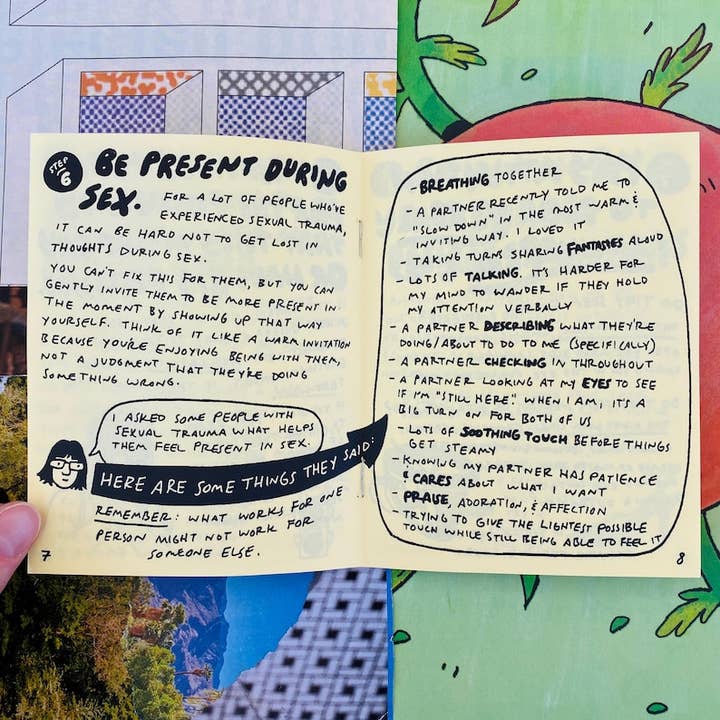 STEP 6
BE PRESENT DURING
SEX. FOR A LOT OF PEOPLE WHO'VE
EXPERIENCED SEXUAL TRAUMA,
IT CAN BE HARD NOT TO GET LOST IN
THOUGHTS DURING SEX.
YOU CAN'T FIX THIS FOR THEM, BUT YOU CAN
GENTLY INVITE THEM TO BE MORE PRESENT IN
THE MOMENT BY SHOWING UP THAT WAY
YOURSELF. THINK OF IT LIKE A WARM INVITATION
BECAUSE YOU'RE ENJOYING BEING WITH THEM,
NOT A JUDGMENT THAT THEY'RE DOING
SOMETHING WRONG.
I ASKED SOME PEOPLE WITH
SEXUAL TRAUMA WHAT HELPS
THEM FEEL PRESENT IN SEX.
HERE ARE SOME THINGS THEY SAID:
REMEMBER: WHAT WORKS FOR ONE
PERSON MIGHT NOT WORK FOR
SOMEONE ELSE.
7
- BREATHING TOGETHER
- A PARTNER RECENTLY TOLD ME TO
"SLOW DOWN" IN THE MOST WARM &
INVITING WAY. I LOVED IT
- TAKING TURNS SHARING FANTASIES ALOUD
- LOTS OF TALKING. IT'S HARDER FOR
MY MIND TO WANDER IF THEY HOLD
MY ATTENTION VERBALLY
- A PARTNER DESCRIBING WHAT THEY'RE
DOING/ABOUT TO DO TO ME (SPECIFICALLY)
- A PARTNER CHECKING IN THROUGHOUT
- A PARTNER LOOKING AT MY EYES TO SEE
IF I'M "STILL HERE." WHEN I AM, IT'S A
BIG TURN ON FOR BOTH OF US
- LOTS OF SOOTHING TOUCH BEFORE THINGS
GET STEAMY
- KNOWING MY PARTNER HAS PATIENCE
& CARES ABOUT WHAT I WANT
- PRAISE, ADORATION, & AFFECTION
- TRYING TO GIVE THE LIGHTEST POSSIBLE
TOUCH WHILE STILL BEING ABLE TO FEEL IT
8